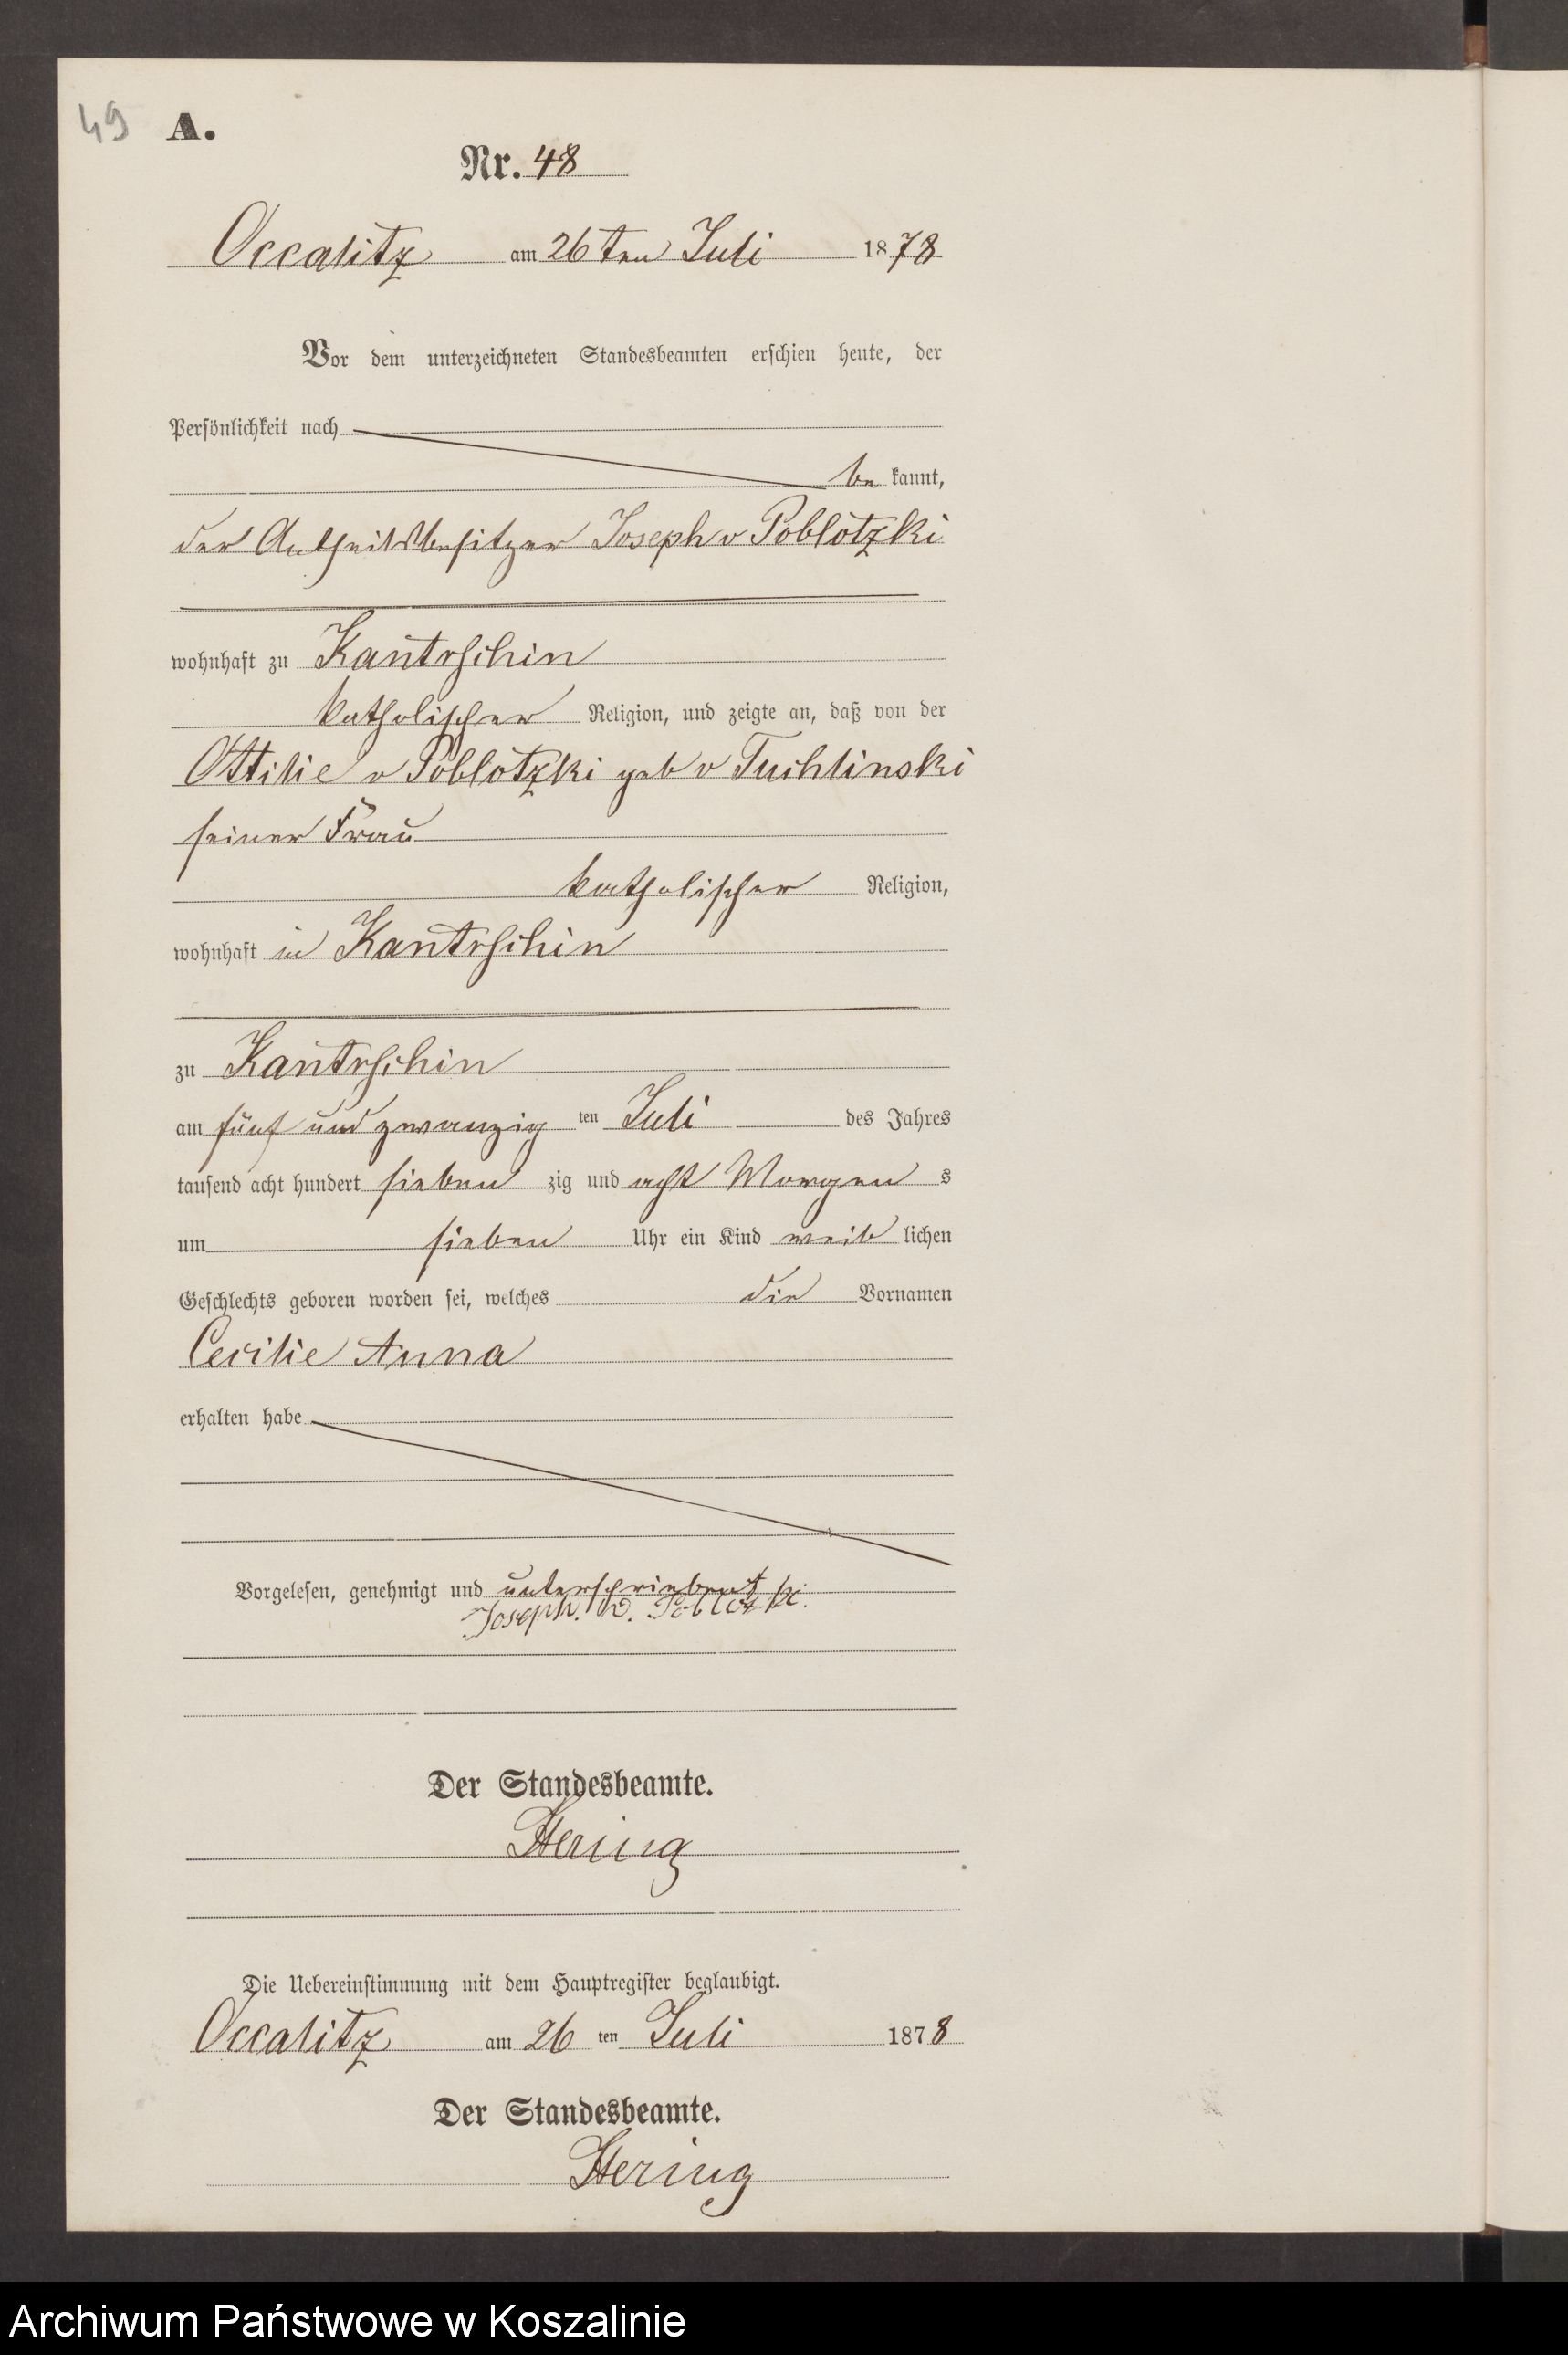 49 A.
Nr. 48
Occalitz am 26ten Juli 1878
Vor dem unterzeichneten Standesbeamten erschien heute, der
Persönlichkeit nach
be kannt,
der Antheilsbesitzer Joseph v Poblotzki
wohnhaft zu Kantrschin
katholischer Religion, und zeigte an, daß von der
Ottilie v Poblotzki geb v Tuchlinski
seiner Frau
katholischer Religion,
wohnhaft in Kantrschin
zu Kantrschin
am fünf und zwanzig ten Juli des Jahres
tausend acht hundert sieben zig und acht Morgen s
um sieben Uhr ein Kind weib lichen
Geschlechts geboren worden sei, welches die Vornamen
Cecilie Anna
erhalten habe
Vorgelesen, genehmigt und unterschrieben
Joseph. v. Poblotzki.
Der Standesbeamte.
Hering
Die Uebereinstimmung mit dem Hauptregister beglaubigt.
Occalitz am 26 ten Juli 1878
Der Standesbeamte.
Hering
Archiwum Państwowe w Koszalinie